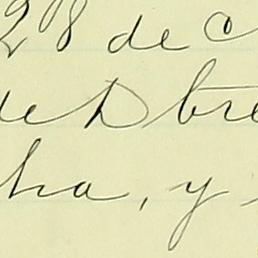 28 de
de Dbre
ha, y